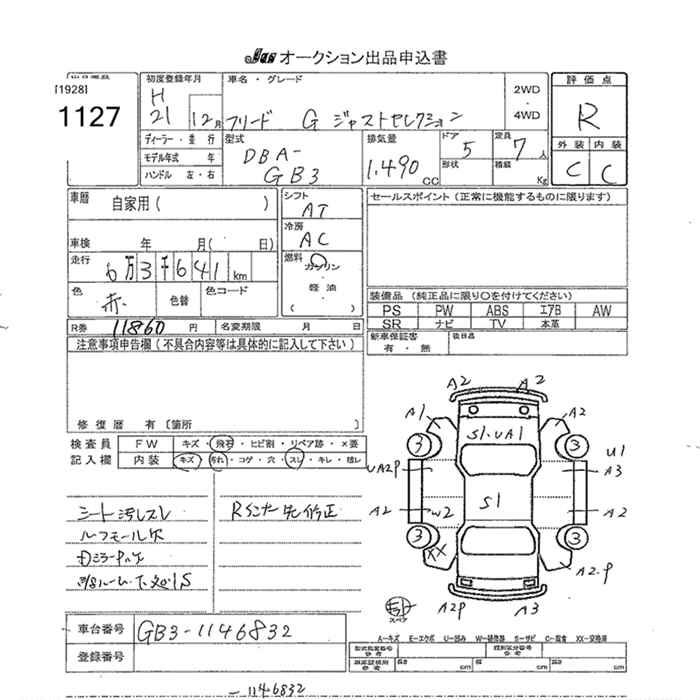 JU オークション出品申込書
[1928]
1127
初度登録年月 車名・グレード 2WD ・ 4WD 評価点
H 21 12月 フリード G ジャストセレクション R
ディーラー・並行 型式 排気量 ドア 定員 外装 内装
モデル年式 年 DBA- GB3 1.490 CC 5 7人 C C
ハンドル 左・右 形状 積載 Kg
車歴 自家用( ) シフト AT セールスポイント(正常に機能するものに限ります)
冷房 AC
車検 年 月( 日)
走行 6万3千641 km 燃料 ガソリン・軽油・( )
色 赤 色替 色コード
装備品(純正品に限り○を付けてください)
PS PW ABS エアB AW
SR ナビ TV 本革
R券 11860 円 名変期限 月 日
新車保証書 有・無 後日品
注意事項申告欄(不具合内容等は具体的に記入して下さい)
修復歴 有〔箇所 〕
検査員 FW キズ・飛石・ヒビ割・リペア跡・×要
記入欄 内装 キズ・汚れ・コゲ・穴・スレ・キレ・捲レ
シート汚レスレ Rインナー先修正
ルーフモール欠
A2 A2
A1 A2
S1・UA1
3 3
UA2P U1
A3
S1
A2 W2 A2
3 3
XX
A2P A3 A2.P
スペア
A-キズ E-エクボ U-凹み W-補修跡 S-サビ C-腐食 XX-交換済
型式指定番号 類別区分番号
長さ cm 幅 cm 高さ cm
車台番号 GB3-1146832
登録番号
-1146832